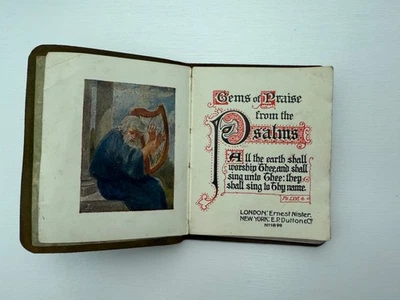 Gems of Praise
from the
Psalms
All the earth shall
worship Thee, and shall
sing unto Thee: they
shall sing to Thy name.
LONDON: Ernest Nister.
NEW YORK: E.P. Dutton & Co